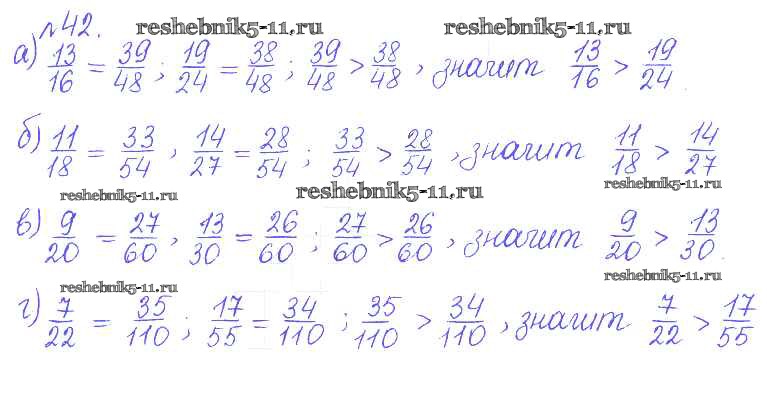 №42. reshebnik5-11.ru reshebnik5-11.ru
а) 13/16 = 39/48; 19/24 = 38/48; 39/48 > 38/48, значит 13/16 > 19/24.
б) 11/18 = 33/54, 14/27 = 28/54; 33/54 > 28/54, значит 11/18 > 14/27
reshebnik5-11.ru reshebnik5-11.ru reshebnik5-11.ru
в) 9/20 = 27/60, 13/30 = 26/60; 27/60 > 26/60, значит 9/20 > 13/30.
reshebnik5-11.ru reshebnik5-11.ru
г) 7/22 = 35/110; 17/55 = 34/110; 35/110 > 34/110, значит 7/22 > 17/55